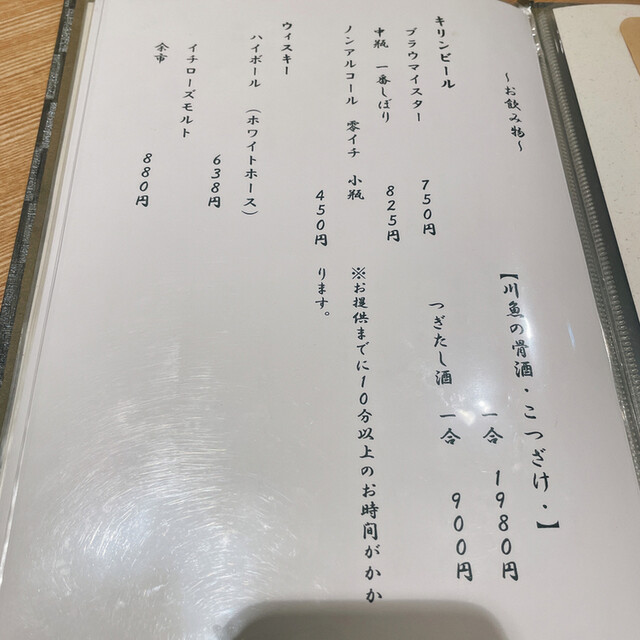 ～お飲み物～
キリンビール
ブラウマイスター 750円
中瓶 一番しぼり 825円
ノンアルコール 零イチ 小瓶 450円
ウィスキー
ハイボール （ホワイトホース） 638円
イチローズモルト 880円
余市
【川魚の骨酒・こつざけ・】
一合 1980円
つぎたし酒 一合 900円
※お提供までに10分以上のお時間がかか
ります。